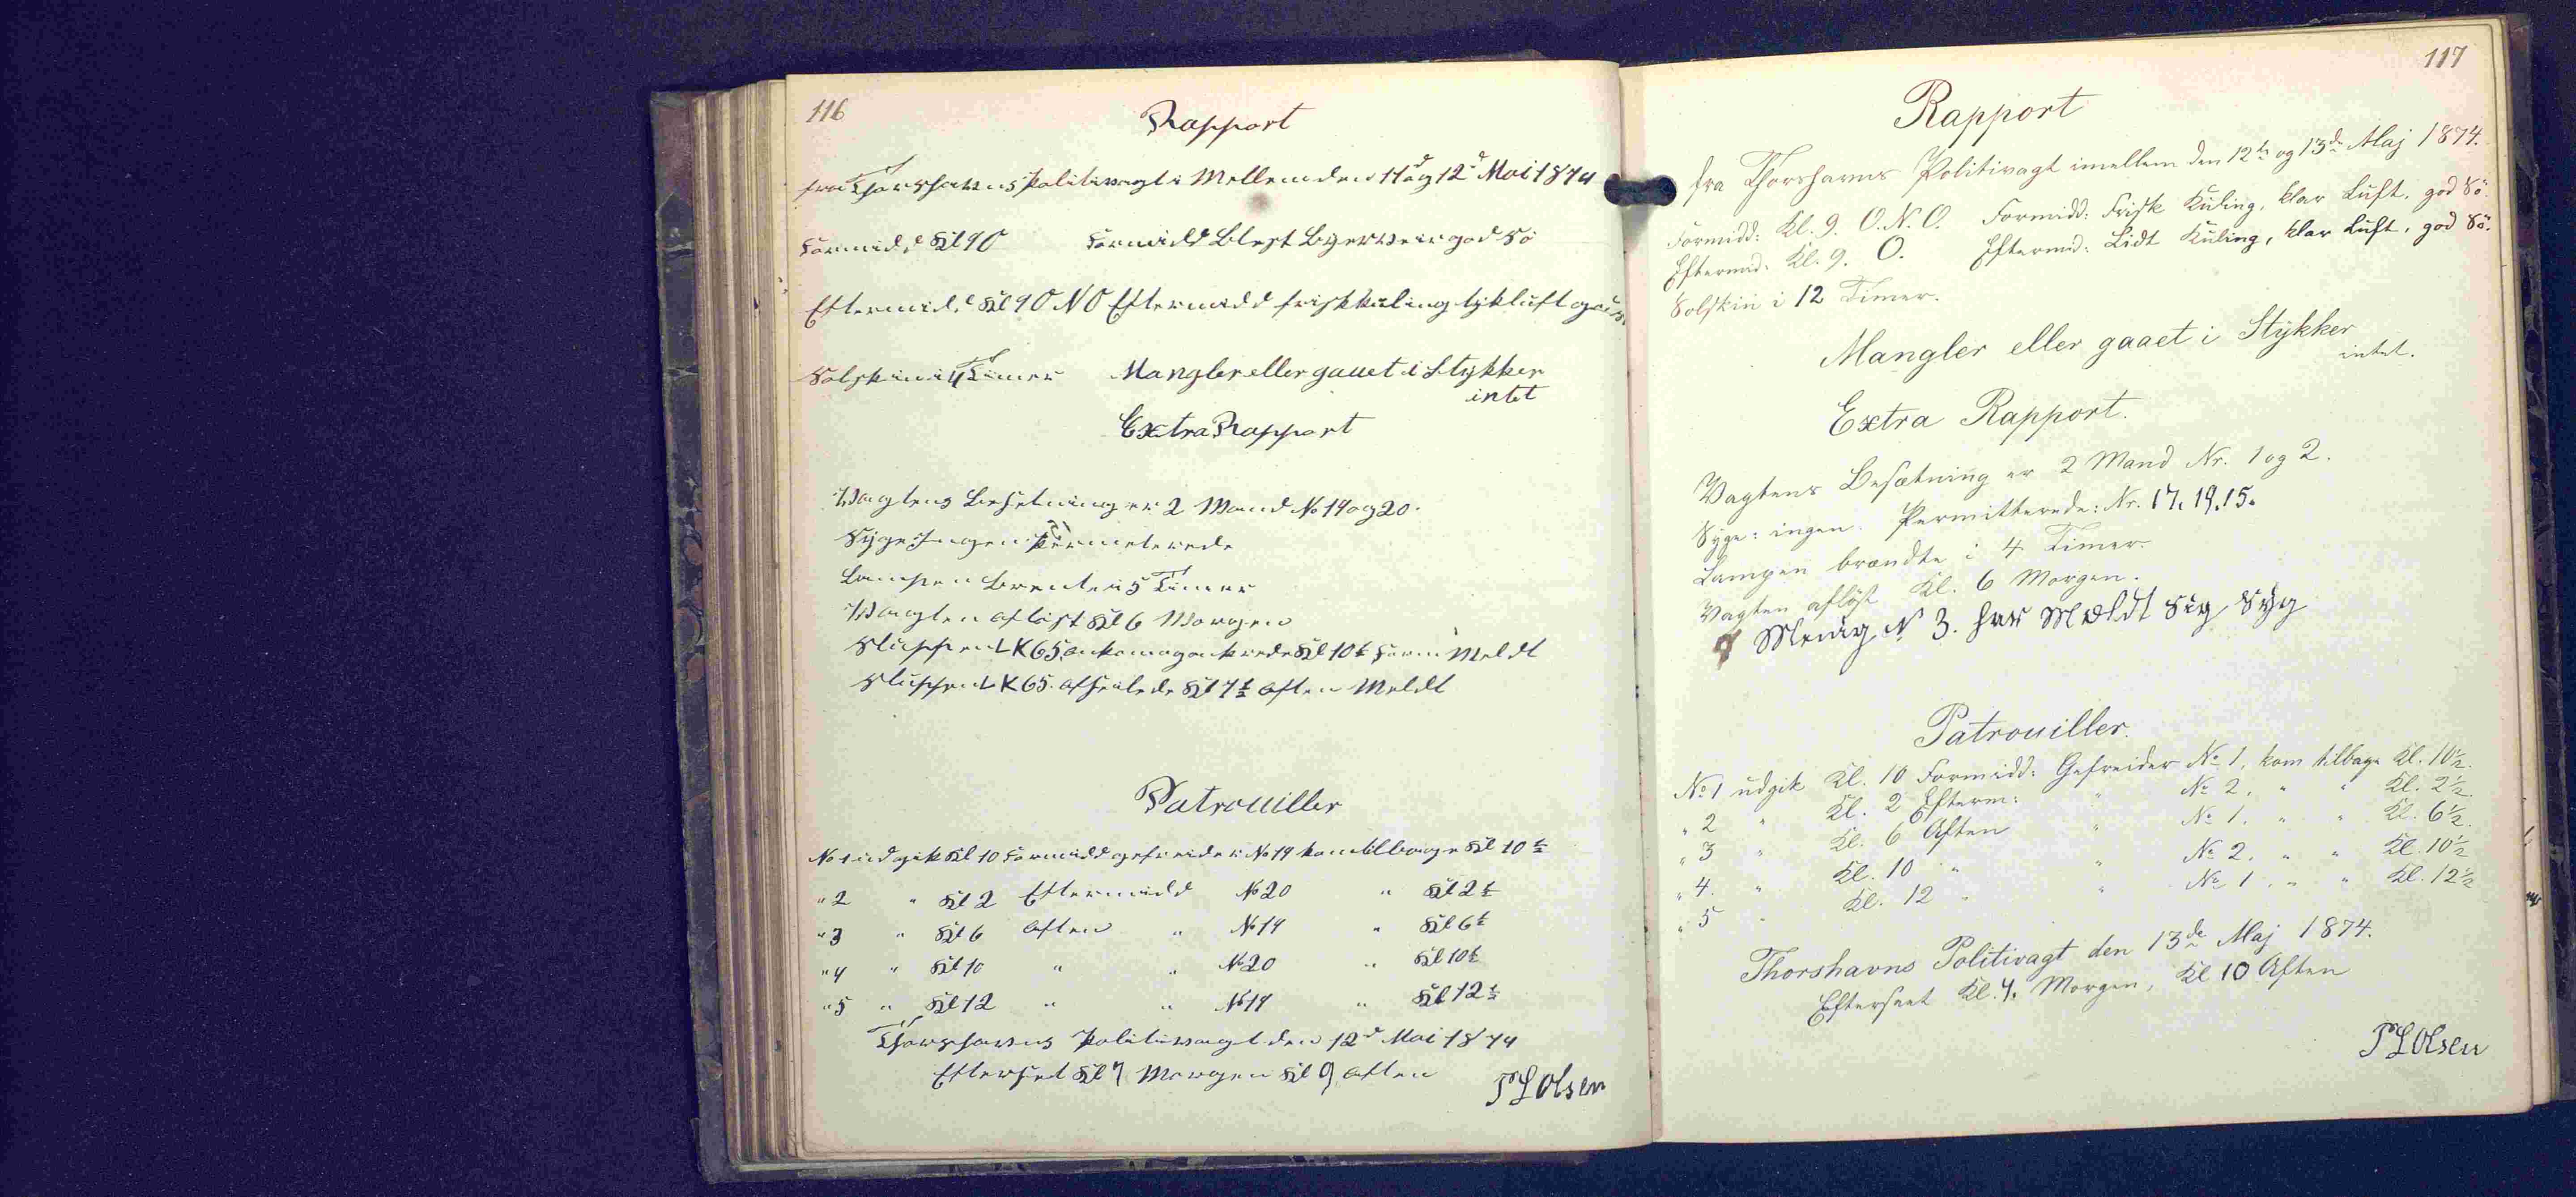 116
Rapport
fra Thorshavns Politivagt i Mellem den 11d og 12d Mai 1874
Formidd Kl 9 O Formidd Blest Byerveir god Sö
Eftermidd Kl 9 O N O Eftermidd frisk kuling tyk luft god Sö
Solskin i 4 Timer Mangler eller gaaet i Stykker
intet
Extra Rapport
Vagtens Besetning er 2 Mand No 19 og 20.
Syge Ingen Permeterede
Lampen brente i 5 Timer
Vagten aflöst Kl 6 Morgen
Sluppen LK 65. ankom og ankrede Kl 10½ Form Meldt
Sluppen LK 65. afseilede Kl 7½ aften Meldt
Patrouiller
No 1 udgik Kl 10 Formidd gefreider No 19 kom tilbage Kl 10½
" 2 " Kl 2 Eftermidd No 20 " Kl 2½
" 3 " Kl 6 Aften " No 19 " Kl 6½
" 4 " Kl 10 " " No 20 " Kl 10½
" 5 " Kl 12 " " No 19 " Kl 12½
Thorshavns Politivagt den 12d Mai 1874
Efterset Kl 7 Morgen Kl 9 aften
P L Olsen
117
Rapport
fra Thorshavns Politivagt imellem den 12te og 13de Maj 1874.
Formidd: Kl. 9. O.N.O. Formidd: Frisk Kuling, klar Luft, god Sö.
Eftermd: Kl. 9. O. Eftermd: Lidt Kuling, klar Luft, god Sö.
Solskin i 12 Timer.
Mangler eller gaaet i Stykker
intet.
Extra Rapport.
Vagtens Besætning er 2 Mand Nr. 1 og 2.
Syge: ingen. Permitterede: Nr. 17. 19. 15.
Lampen brændte i 4 Timer.
Vagten aflöst Kl. 6 Morgen.
Menig N 3. har Mældt Sig Syg
Patrouiller.
No 1 udgik Kl. 10 Formidd: Gefreider No 1, kom tilbage Kl. 10½.
" 2 " Kl. 2 Efterm: " No 2, " " Kl. 2½.
" 3 " Kl. 6 Aften " No 1. " " Kl. 6½.
" 4. " Kl. 10 " " No 2. " " Kl. 10½
" 5 " Kl. 12 " " No 1. " " Kl. 12½
Thorshavns Politivagt den 13de Maj 1874.
Efterseet Kl. 7. Morgen, Kl 10 Aften
P L Olsen